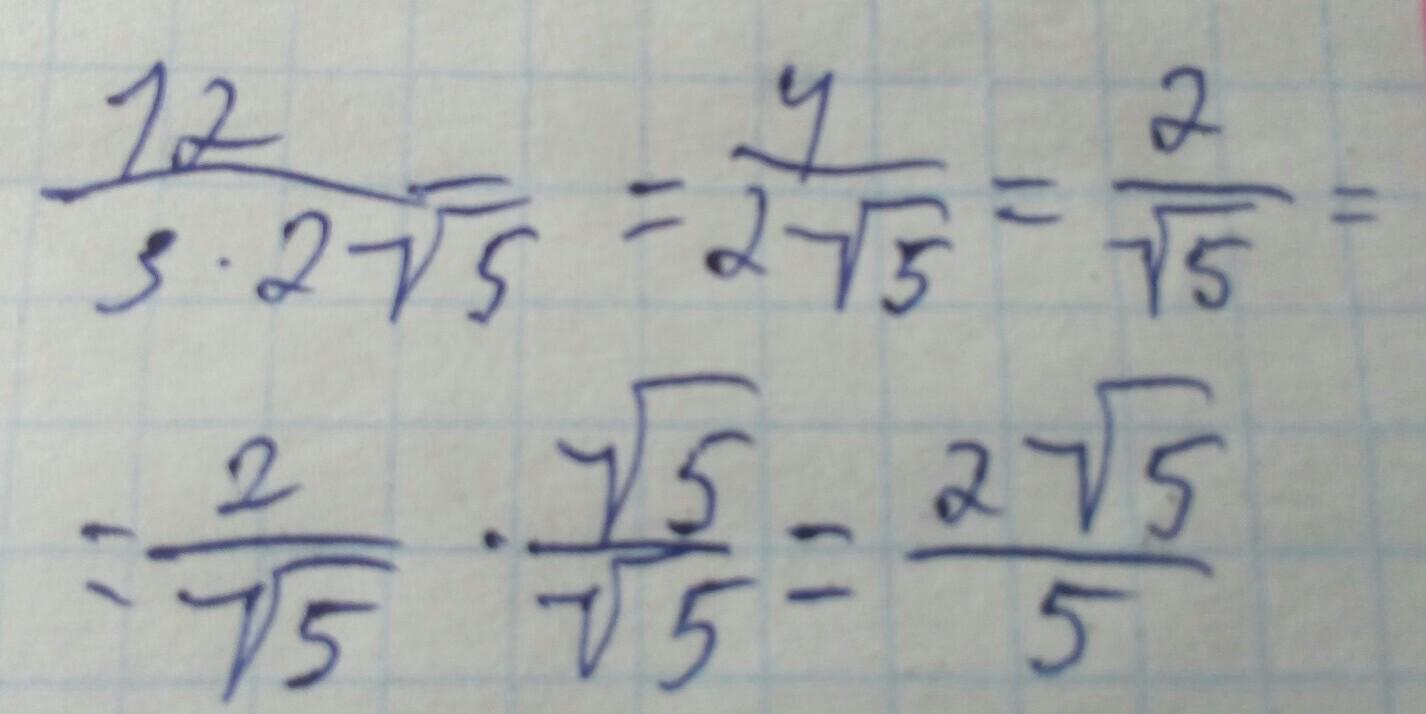 12/(3·2√5) = 4/(2√5) = 2/√5 =
= 2/√5 · √5/√5 = 2√5/5